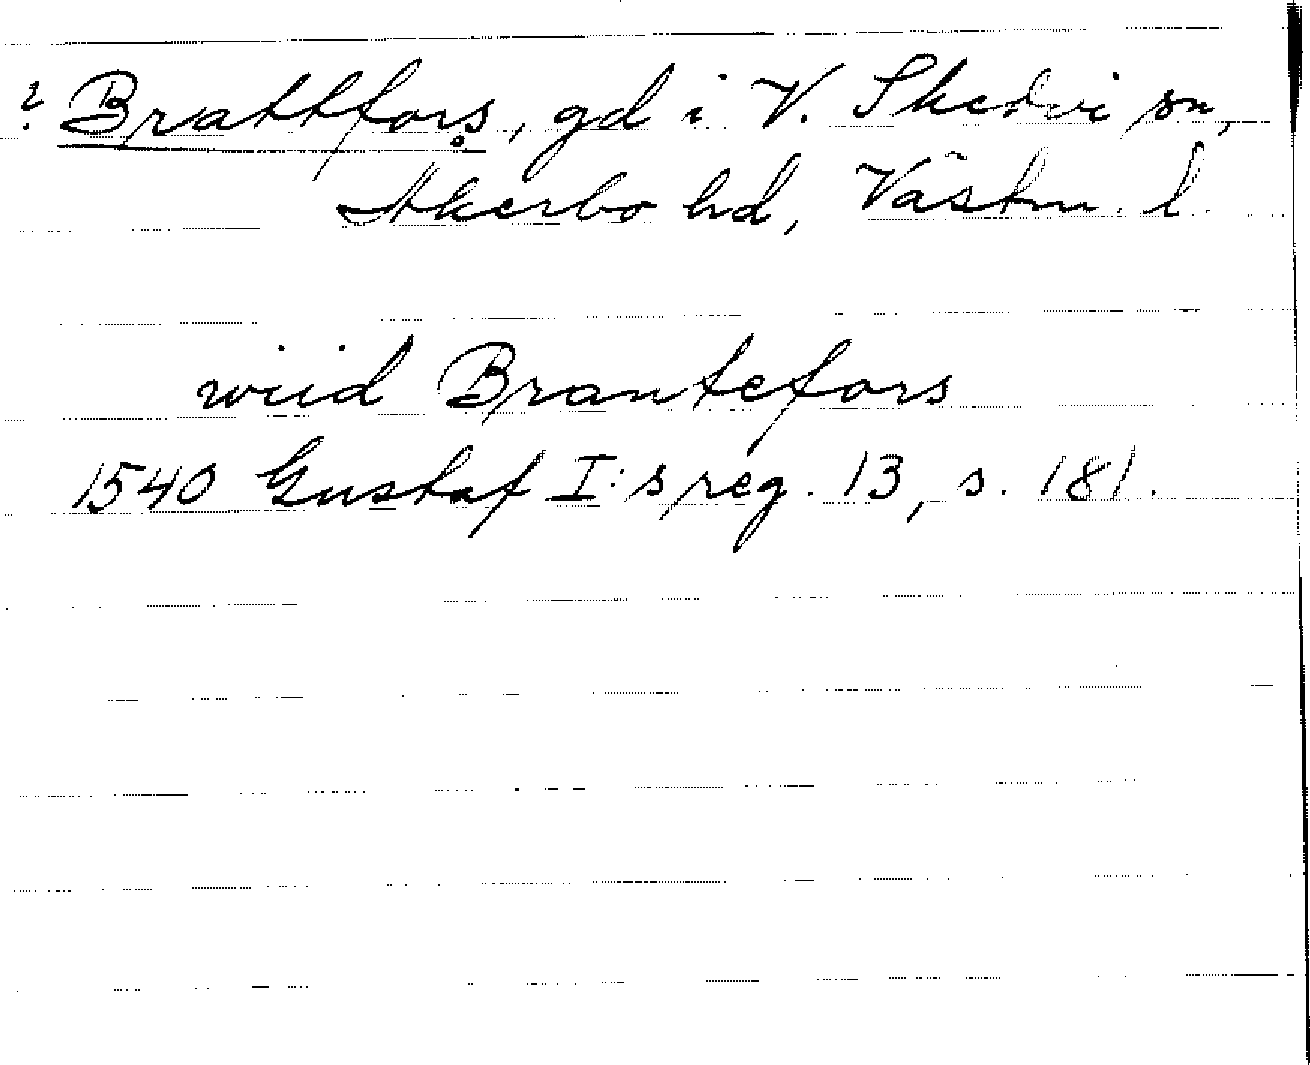 ? Brattfors, gd i V. Skedvi sn,
Åkerbo hd, Västm. l.
wiid Brantefors
1540 Gustaf I:s reg. 13, s. 181.